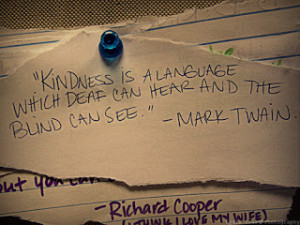 "KINDNESS IS A LANGUAGE
WHICH DEAF CAN HEAR AND THE
BLIND CAN SEE."
- MARK TWAIN.
but you can
- Richard Cooper
(I THINK I LOVE MY WIFE)